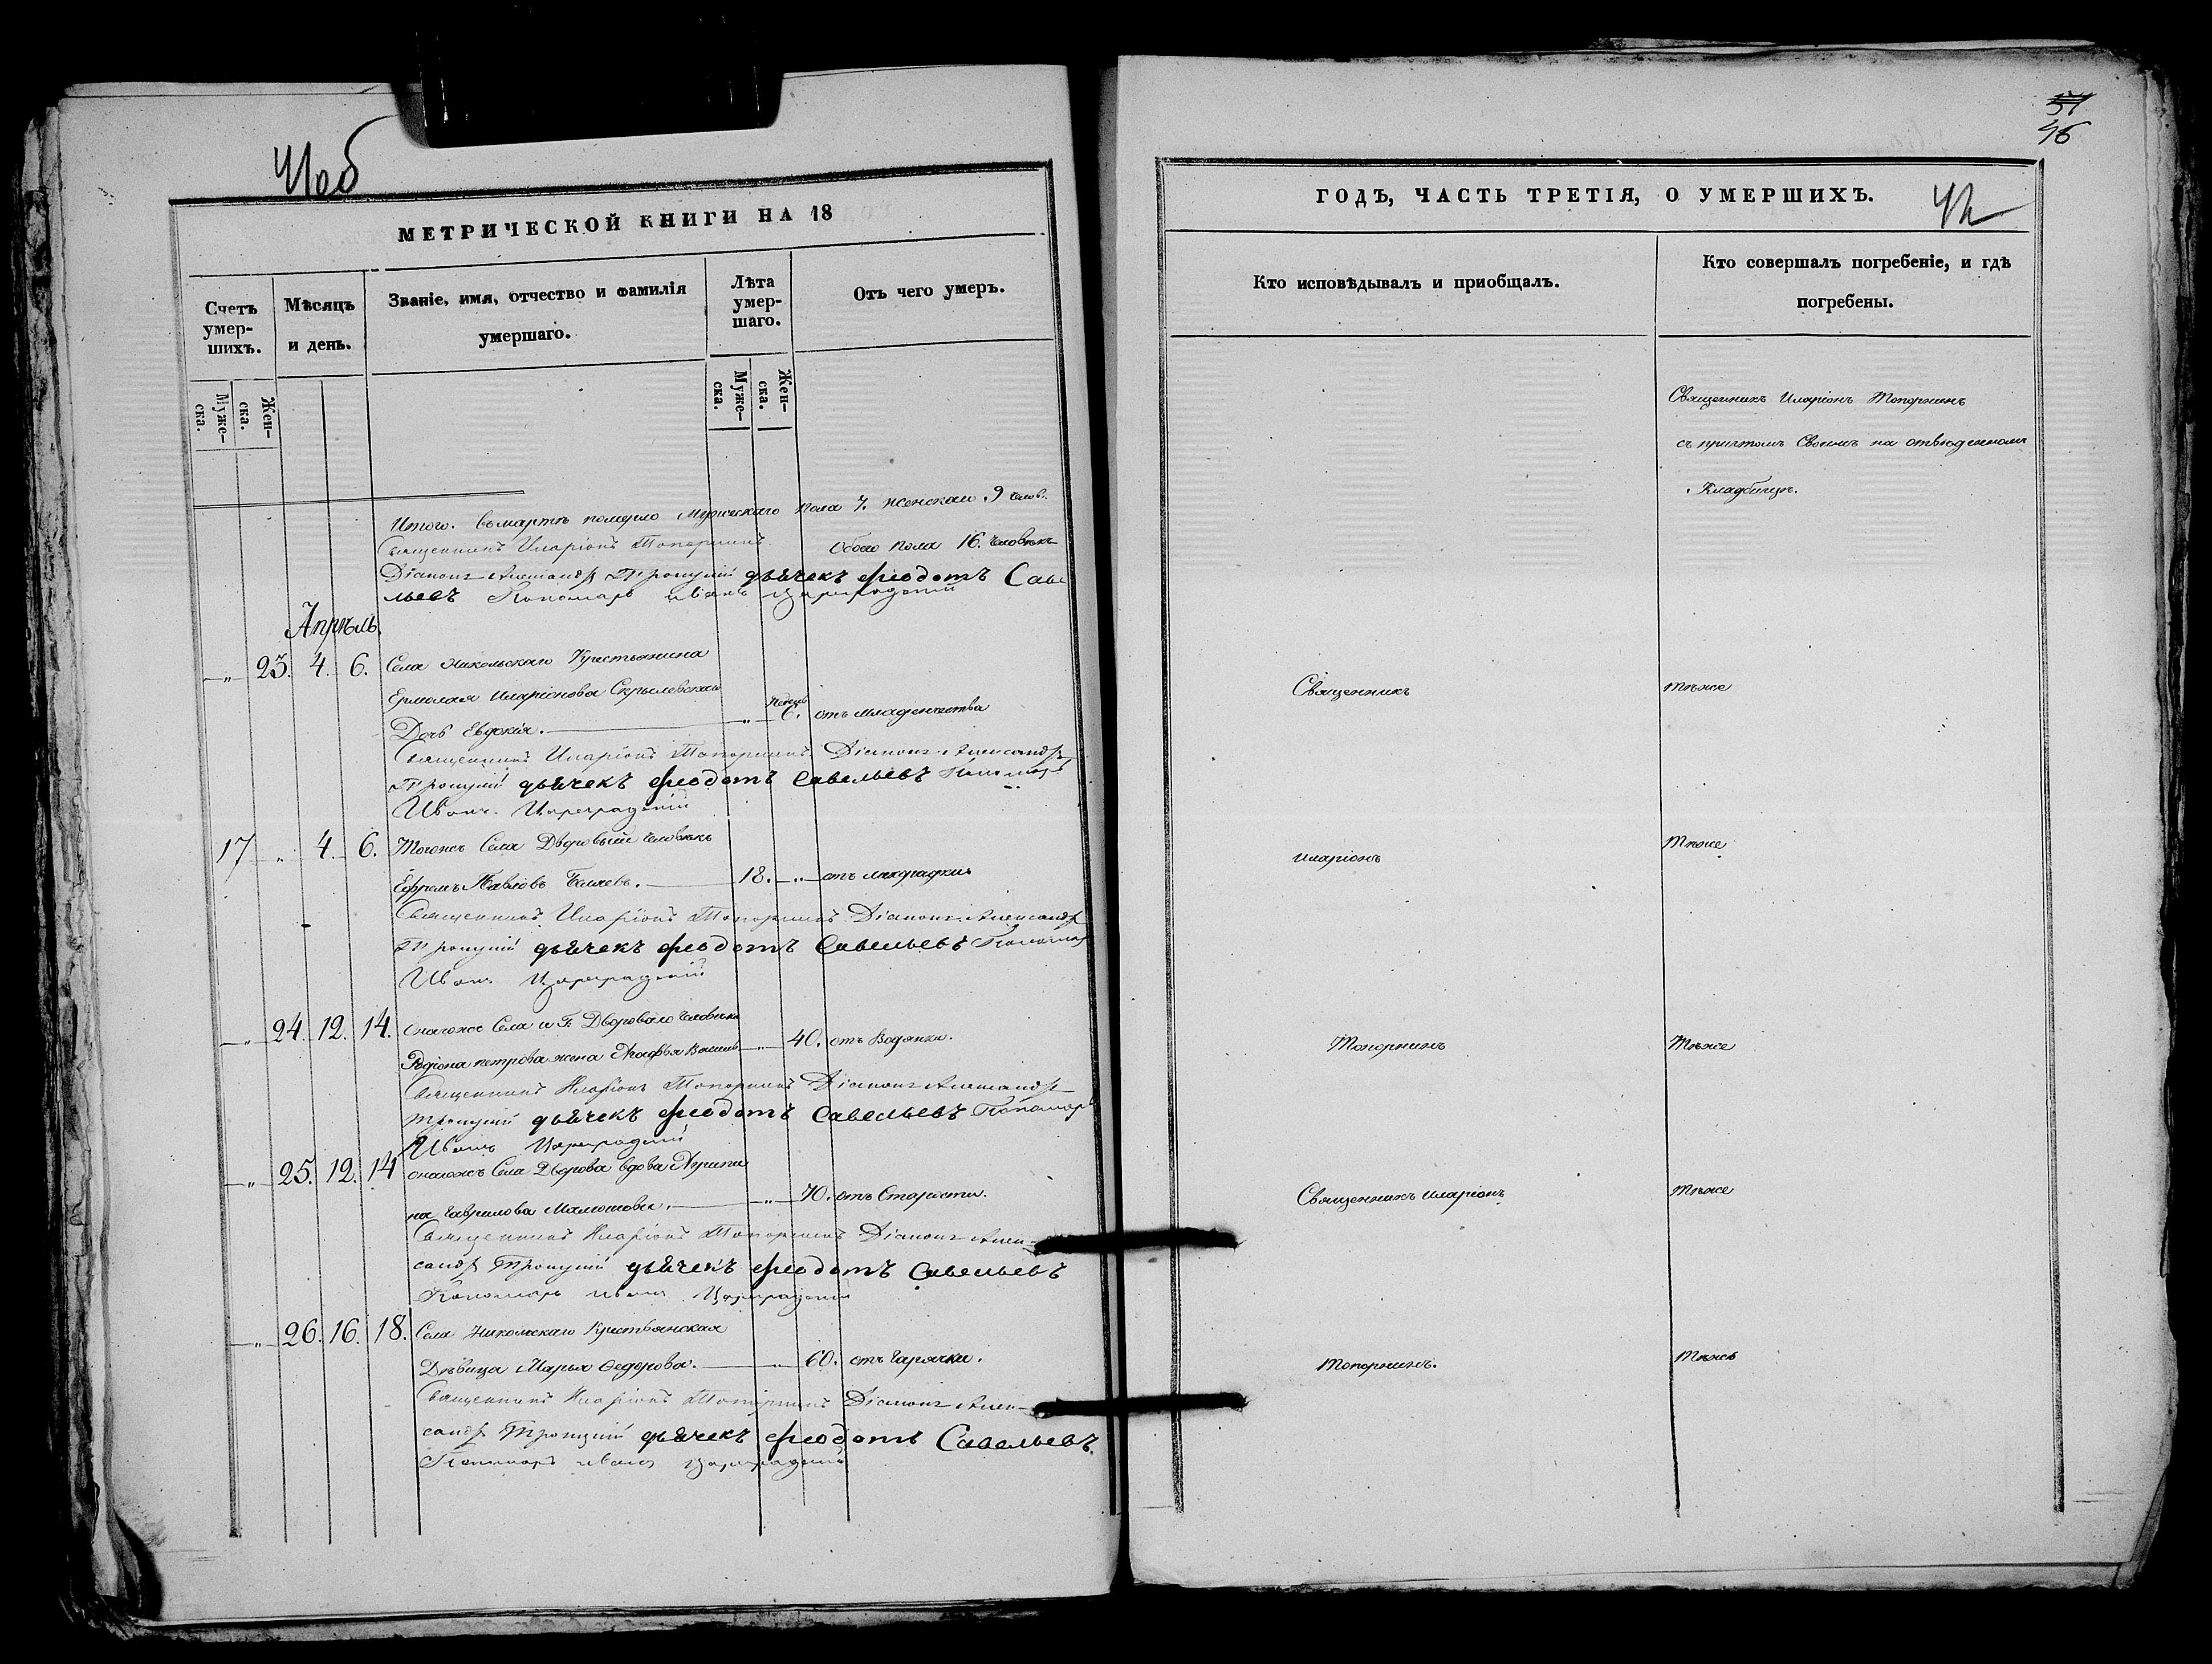 41об
МЕТРИЧЕСКОЙ КНИГИ НА 18
Счетъ умер-шихъ.
Мѣсяцъ и день.
Званіе, имя, отчество и фамилія умершаго.
Лѣта умер-шаго.
Отъ чего умеръ.
Муже-ска.
Жен-ска.
Муже-ска.
Жен-ска.
Итого. въ мартѣ померло Мужескаго пола 7. женскаго 9 челов.
Священникъ Иларіонъ Топорнинъ Обоего пола 16. Человѣкъ
Діаконъ Александръ Троицкій дьячекъ Феодотъ Саве
льевъ Пономарь Иванъ Цареградскій
Апрѣль.
„ 23. 4. 6. Села Никольскаго Крестьянина
Ермолая Иларіонова
Дочь Евдокія. „ 6. отъ младенчества
Священникъ Иларіонъ Топорнинъ Діаконъ Александръ
Троицкій дьячекъ Феодотъ Савельевъ Пономарь
Иванъ Цареградскій
17 „ 4. 6. Тогожъ Села Дворовый человѣкъ
Ефремъ Павловъ Беляевъ. 18. „ отъ лихорадки
Священникъ Иларіонъ Топорнинъ Діаконъ Александръ
Троицкій дьячекъ Феодотъ Савельевъ Пономарь
Иванъ Цареградскій
„ 24. 12. 14. Онагоже Села Двороваго человѣка
Родіона петрова жена Агафья „ 40. отъ Водянки.
Священникъ Иларіонъ Топорнинъ Діаконъ Александръ
Троицкій дьячекъ Феодотъ Савельевъ Пономарь
Иванъ Цареградскій
„ 25. 12. 14 онагожъ Села Дворова вдова Агрипи
на Гаврилова „ 70. отъ Старости.
Священникъ Иларіонъ Топорнинъ Діаконъ Алек-
сандръ Троицкій дьячекъ Феодотъ Савельевъ
Пономарь Иванъ Цареградскій
„ 26. 16. 18. Села Никольскаго Крестьянская
Дѣвица Марья Федорова. „ 60. отъ Горячки.
Священникъ Иларіонъ Топорнинъ Діаконъ Алек-
сандръ Троицкій дьячекъ Феодотъ Савельевъ.
Пономарь иванъ Цареградскій
46
ГОДЪ, ЧАСТЬ ТРЕТІЯ, О УМЕРШИХЪ.
42
Кто исповѣдывалъ и приобщалъ.
Кто совершалъ погребеніе, и гдѣ погребены.
Священникъ Иларіонъ Топорнинъ
съ причтомъ Своимъ на отведенномъ
Кладбищѣ.
Священникъ Тѣже
иларіонъ Тѣже
Топорнинъ Тѣже
Священникъ иларіонъ Тѣже
Топорнинъ. Тѣже